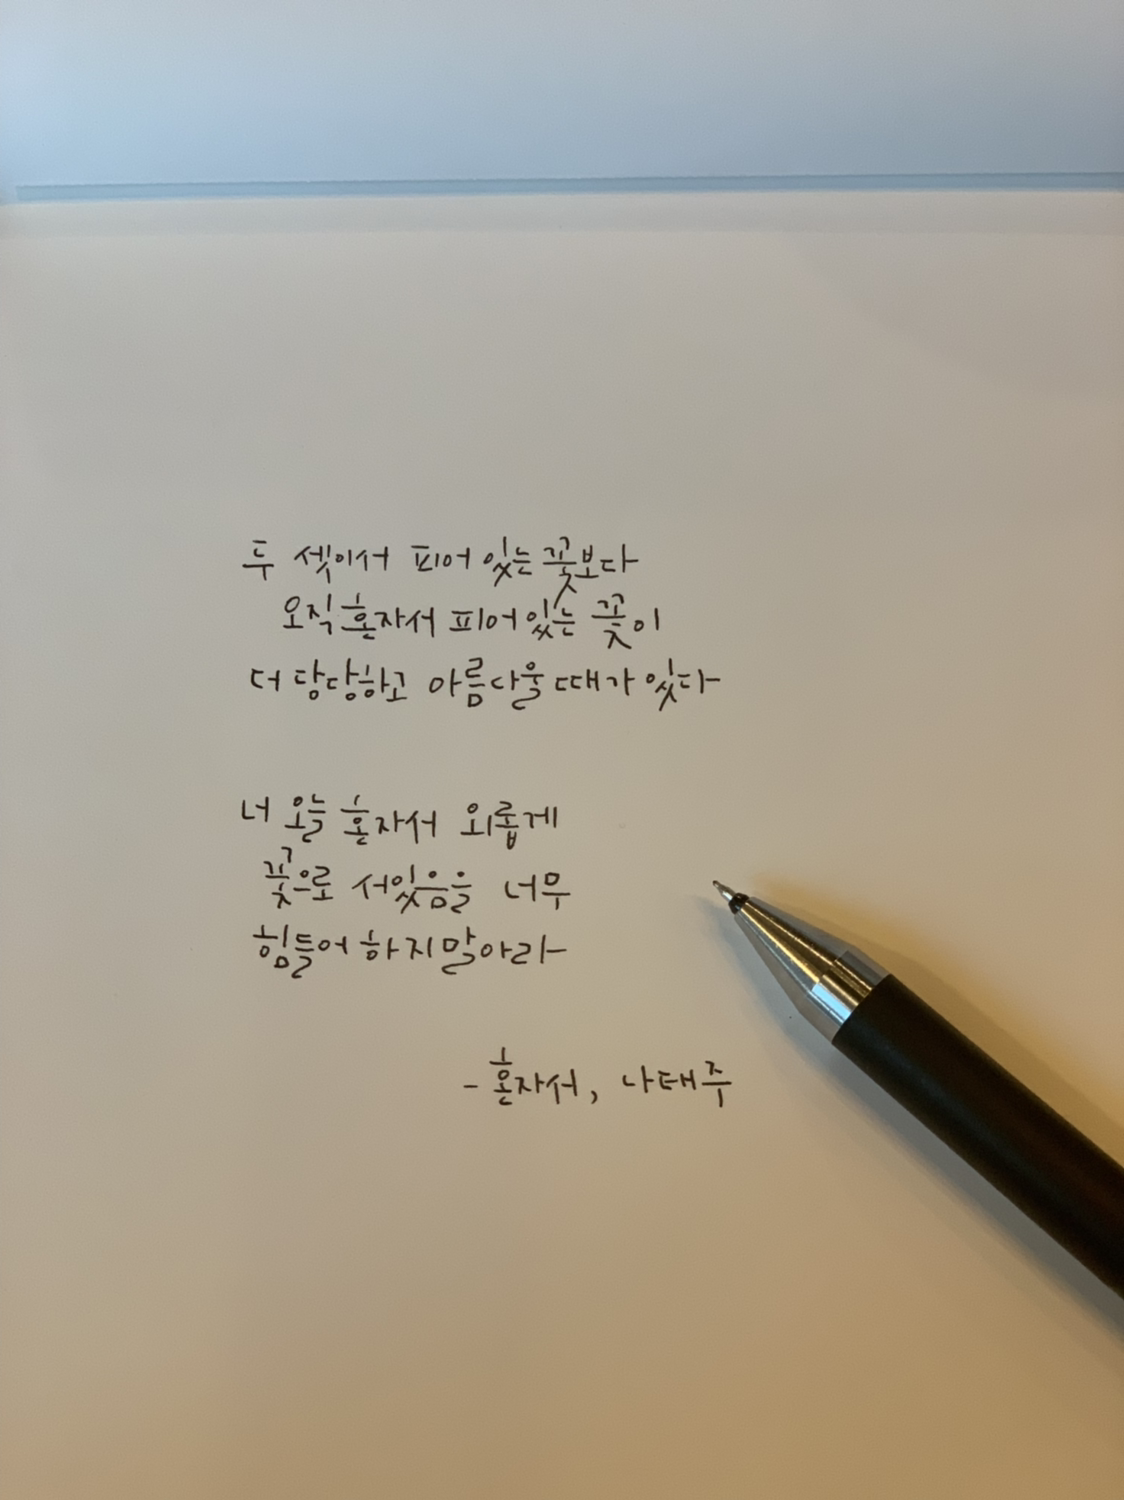 두 셋이서 피어 있는 꽃보다
오직 혼자서 피어있는 꽃이
더 당당하고 아름다울 때가 있다
너 오늘 혼자서 외롭게
꽃으로 서있음을 너무
힘들어 하지말아라
- 혼자서, 나태주